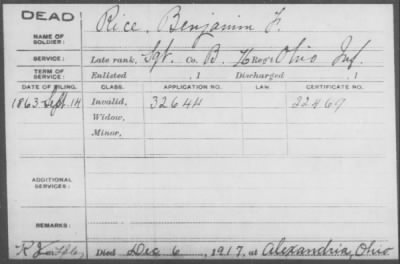 DEAD
NAME OF SOLDIER: Rice, Benjamin F.
SERVICE: Late rank, Sgt. Co. B, 76 Reg't Ohio Inf.
TERM OF SERVICE: Enlisted , 1 Discharged , 1
DATE OF FILING. CLASS. APPLICATION NO. LAW. CERTIFICATE NO.
1863 Sept. 14 Invalid, 32644 22469
Widow,
Minor,
ADDITIONAL SERVICES:
REMARKS:
Died Dec 6, 1917, at Alexandria, Ohio